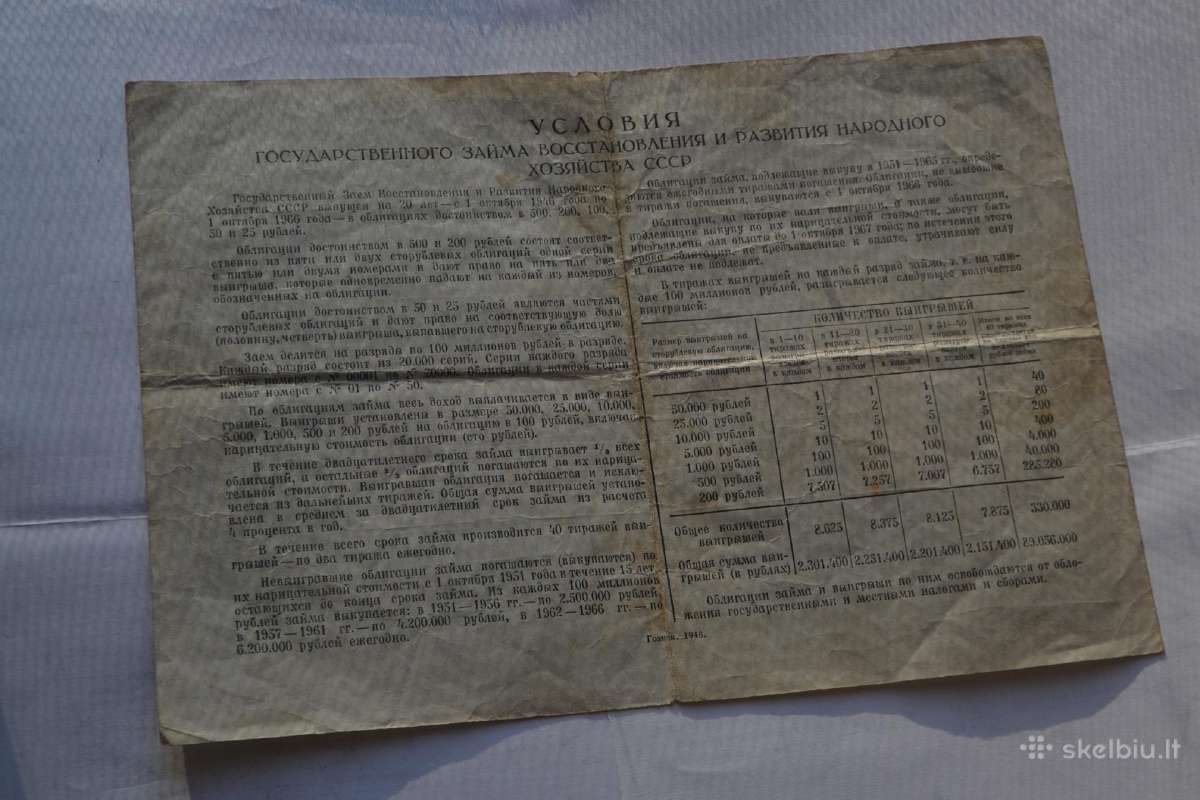 УСЛОВИЯ
ГОСУДАРСТВЕННОГО ЗАЙМА ВОССТАНОВЛЕНИЯ И РАЗВИТИЯ НАРОДНОГО
ХОЗЯЙСТВА СССР
Государственный Заем Восстановления и Развития Народного
Хозяйства СССР выпущен на 20 лет — с 1 октября 1946 года по
1 октября 1966 года — в облигациях достоинством в 500, 200, 100,
50 и 25 рублей.
Облигации достоинством в 500 и 200 рублей состоят соответ-
ственно из пяти или двух сторублевых облигаций одной серии
с пятью или двумя номерами и дают право на пять или два
выигрыша, которые одновременно падают на каждый из номеров,
обозначенных на облигации.
Облигации достоинством в 50 и 25 рублей являются частями
сторублевых облигаций и дают право на соответствующую долю
(половину, четверть) выигрыша, выпавшего на сторублевую облигацию.
Заем делится на разряды по 100 миллионов рублей в разряде.
Каждый разряд состоит из 20.000 серий. Серии каждого разряда
имеют номера с № 00001 по № 20000. Облигации в каждой серии
имеют номера с № 01 по № 50.
По облигациям займа весь доход выплачивается в виде выи-
грышей. Выигрыши установлены в размере 50.000, 25.000, 10.000,
5.000, 1.000, 500 и 200 рублей на облигацию в 100 рублей, включая
нарицательную стоимость облигации (сто рублей).
В течение двадцатилетнего срока займа выигрывает ¹/₃ всех
облигаций, а остальные ²/₃ облигаций погашаются по их нарица-
тельной стоимости. Выигравшая облигация погашается и исклю-
чается из дальнейших тиражей. Общая сумма выигрышей устано-
влена в среднем за двадцатилетний срок займа из расчета
4 процента в год.
В течение всего срока займа производится 40 тиражей выи-
грышей — по два тиража ежегодно.
Невыигравшие облигации займа погашаются (выкупаются) по
их нарицательной стоимости с 1 октября 1951 года в течение 15 лет,
остающихся до конца срока займа. Из каждых 100 миллионов
рублей займа выкупается: в 1951—1956 гг. — по 2.500.000 рублей,
в 1957—1961 гг. — по 4.200.000 рублей, в 1962—1966 гг. — по
6.200.000 рублей ежегодно.
Облигации займа, подлежащие выкупу в 1951—1965 гг., опреде-
ляются ежегодными тиражами погашения. Облигации, не вышедшие
в тиражи погашения, выкупаются с 1 октября 1966 года.
Облигации, на которые пали выигрыши, а также облигации,
подлежащие выкупу по их нарицательной стоимости, могут быть
предъявлены для оплаты до 1 октября 1967 года; по истечении этого
срока облигации, не предъявленные к оплате, утрачивают силу
и оплате не подлежат.
В тиражах выигрышей на каждый разряд займа, т. е. на каж-
дые 100 миллионов рублей, разыгрывается следующее количество
выигрышей:
Размер выигрышей на
сторублевую облигацию,
включая нарицательную
стоимость облигации
КОЛИЧЕСТВО ВЫИГРЫШЕЙ
в 1—10 тиражах в каждом
в 11—20 тиражах в каждом
в 21—30 тиражах в каждом
в 31—40 тиражах в каждом
Итого во всех
50.000 рублей 1 1 1 1 40
25.000 рублей 2 2 2 2 80
10.000 рублей 5 5 5 5 200
5.000 рублей 10 10 10 10 400
1.000 рублей 100 100 100 100 4.000
500 рублей 1.000 1.000 1.000 1.000 40.000
200 рублей 7.507 7.257 7.007 6.757 285.280
Общее количество
выигрышей 8.625 8.375 8.125 7.875 330.000
Общая сумма выи-
грышей (в рублях) 2.301.400 2.251.400 2.201.400 2.151.400 89.056.000
Облигации займа и выигрыши по ним освобождаются от обло-
жения государственными и местными налогами и сборами.
Гознак. 1946.
skelbiu.lt